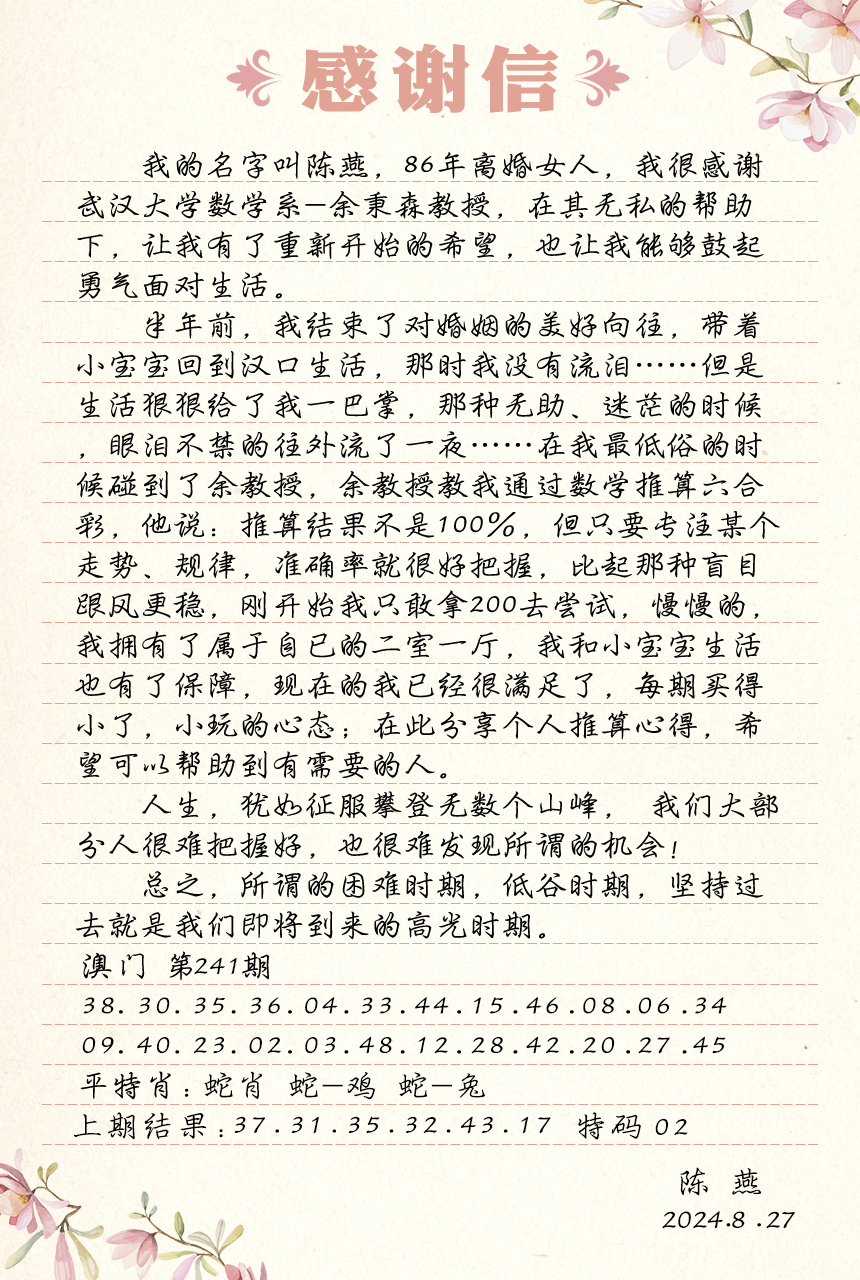 感谢信
我的名字叫陈燕，86年离婚女人，我很感谢
武汉大学数学系—余秉森教授，在其无私的帮助
下，让我有了重新开始的希望，也让我能够鼓起
勇气面对生活。
半年前，我结束了对婚姻的美好向往，带着
小宝宝回到汉口生活，那时我没有流泪……但是
生活狠狠给了我一巴掌，那种无助、迷茫的时候
，眼泪不禁的往外流了一夜……在我最低俗的时
候碰到了余教授，余教授教我通过数学推算六合
彩，他说：推算结果不是100%，但只要专注某个
走势、规律，准确率就很好把握，比起那种盲目
跟风更稳，刚开始我只敢拿200去尝试，慢慢的，
我拥有了属于自已的二室一厅，我和小宝宝生活
也有了保障，现在的我已经很满足了，每期买得
小了，小玩的心态；在此分享个人推算心得，希
望可以帮助到有需要的人。
人生，犹如征服攀登无数个山峰， 我们大部
分人很难把握好，也很难发现所谓的机会！
总之，所谓的困难时期，低谷时期，坚持过
去就是我们即将到来的高光时期。
澳门 第241期
38.30.35.36.04.33.44.15.46.08.06.34
09.40.23.02.03.48.12.28.42.20.27.45
平特肖：蛇肖 蛇—鸡 蛇—兔
上期结果：37.31.35.32.43.17 特码 02
陈 燕
2024.8.27